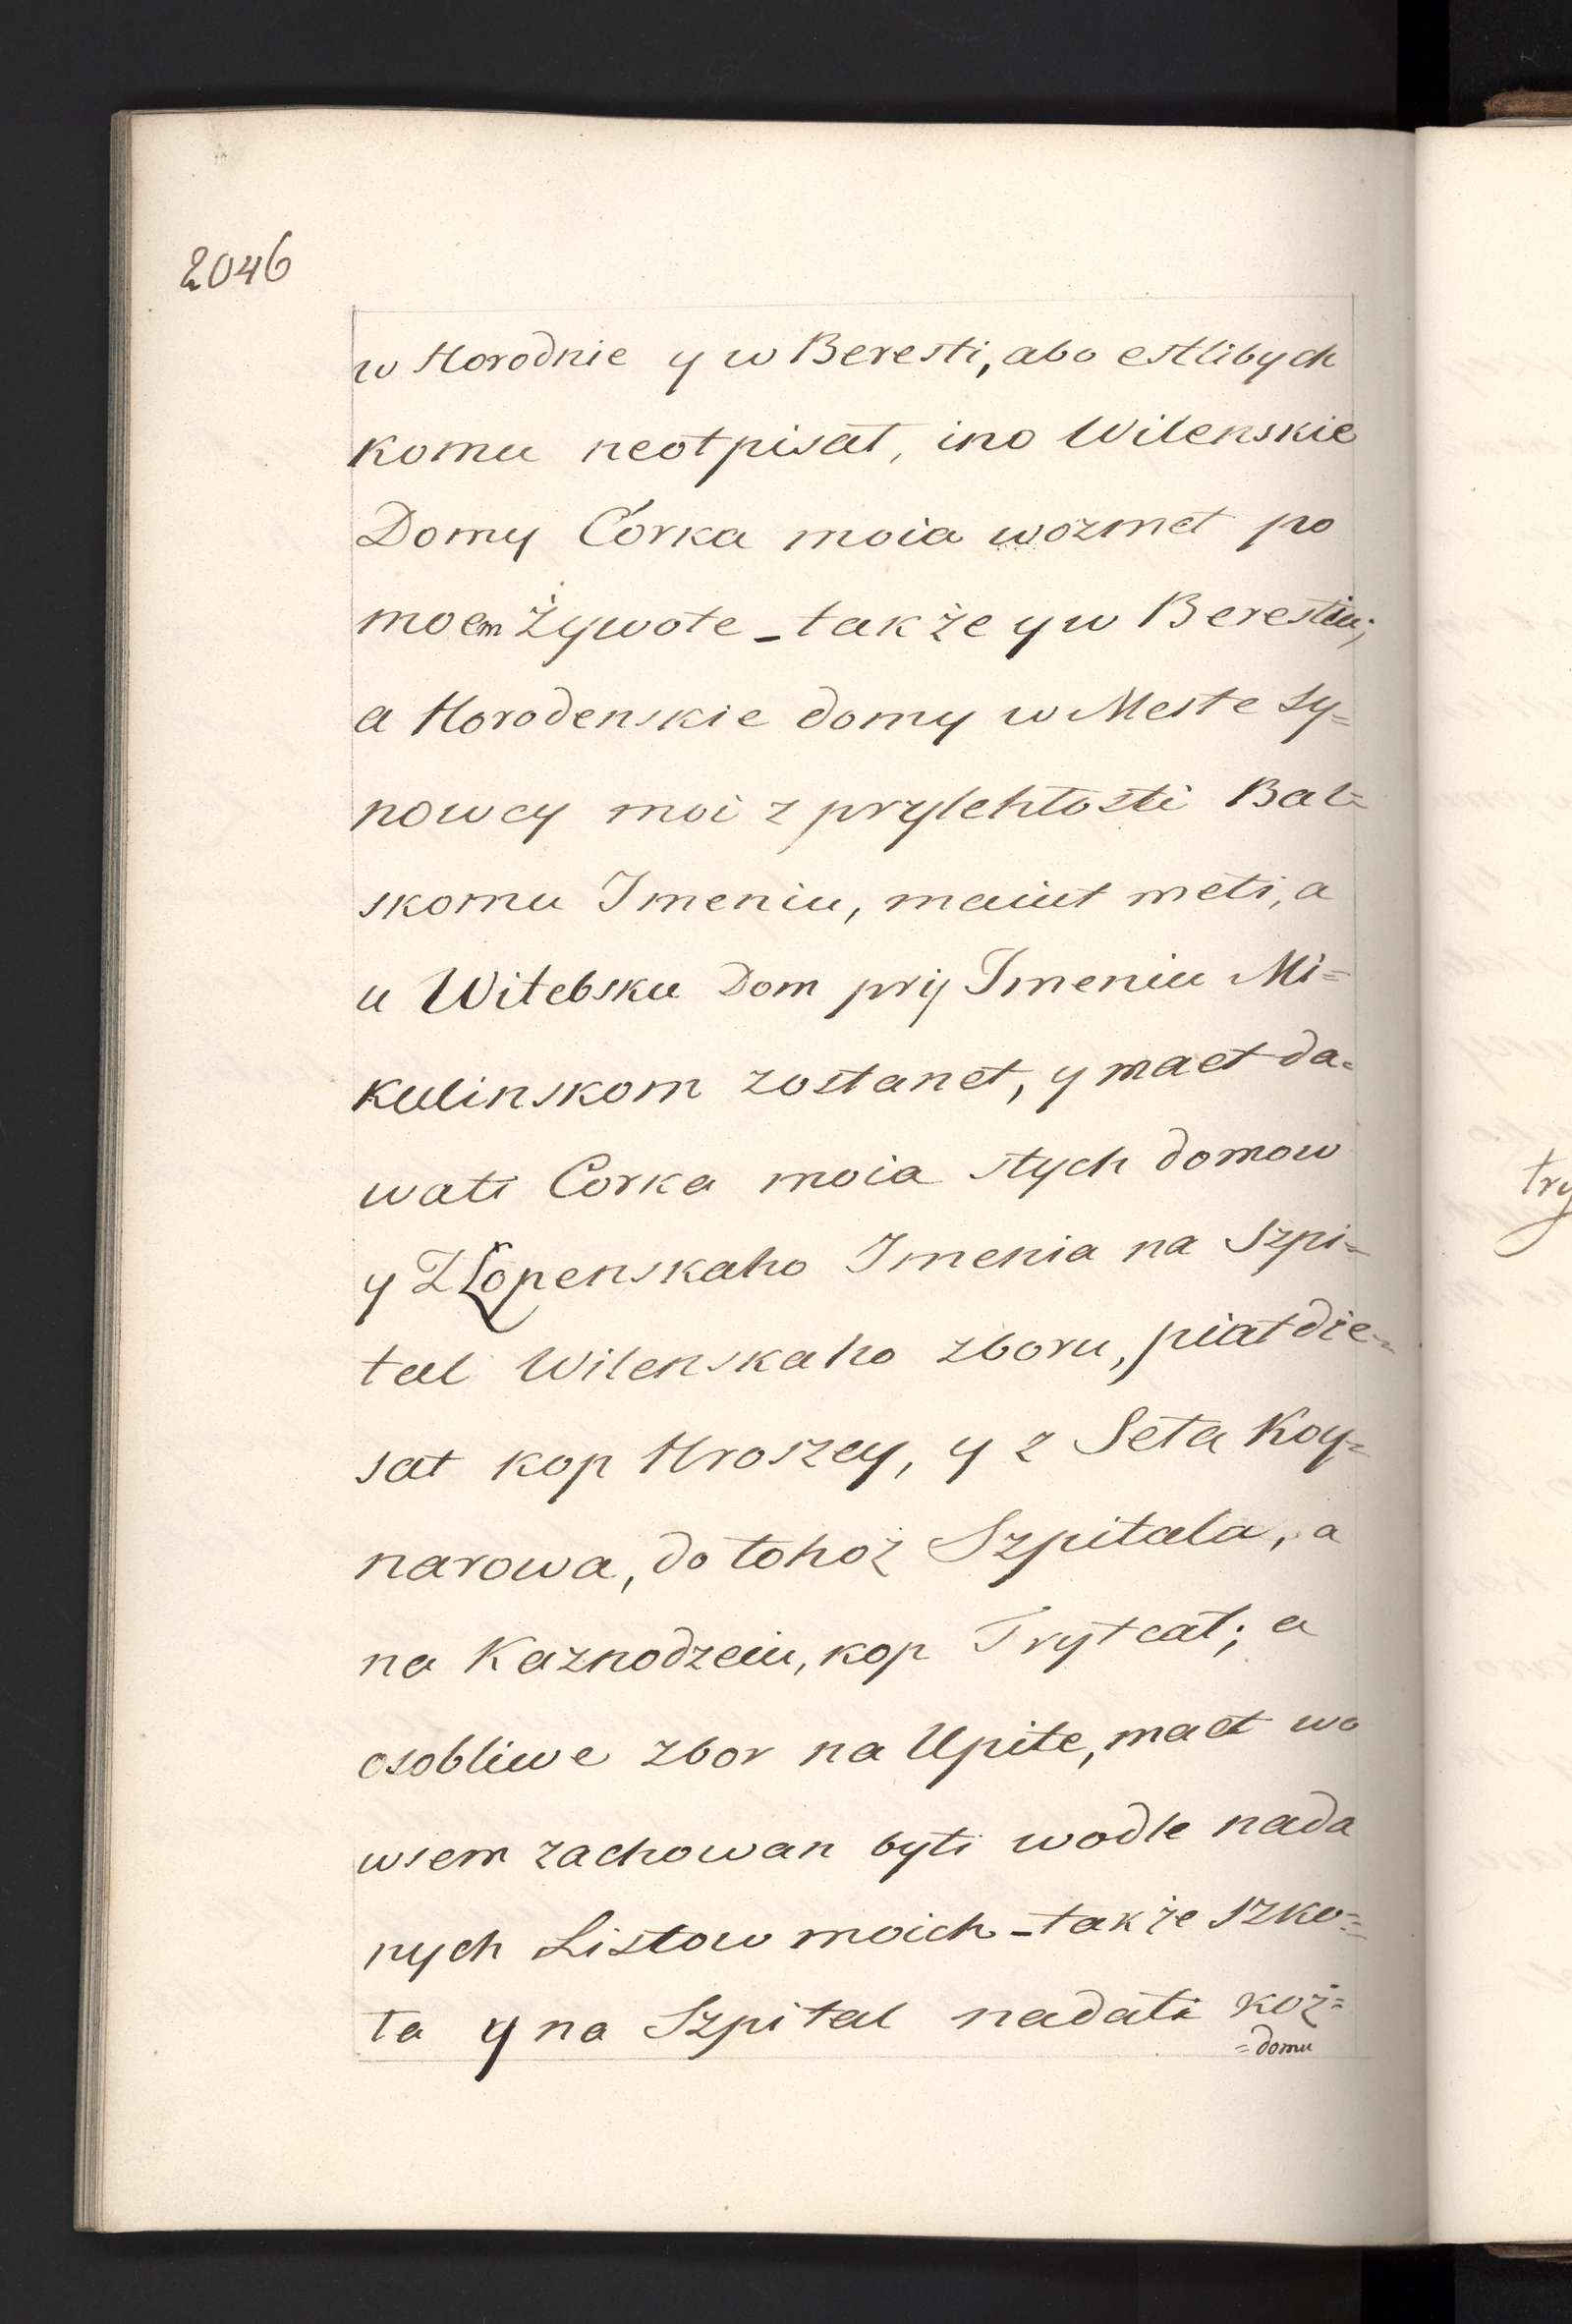 2046
w Horodnie y w Beresti, abo estlibych
komu neotpisał, ino Wilenskie
Domy Córka moia wozmet po
moem Żywote _ także y w Berestiu;
a Horodenskie domy w Meste Sy=
nowcy moi z przylehłosti Bal=
skomu Imeniu, maiut meti, a
u Witebsku Dom prij Imeniu Mi=
kulinskom zostanet, y maet da=
wati Corka moia stych domow
y Z Łopenskaho Imenia na Szpi=
tal Wilenskaho zboru, piatdie=
sat kop Hroszey, y z Seła Koy=
narowa, do tohoż Szpitala, a
na Kaznodzeiu, kop Trytcat; a
osobliwe zbor na Upite, maet wo
wsem zachowan byti wodle nada
nych Listow moich _ także szko=
ła y na Szpital nadati koż=
=domu
try